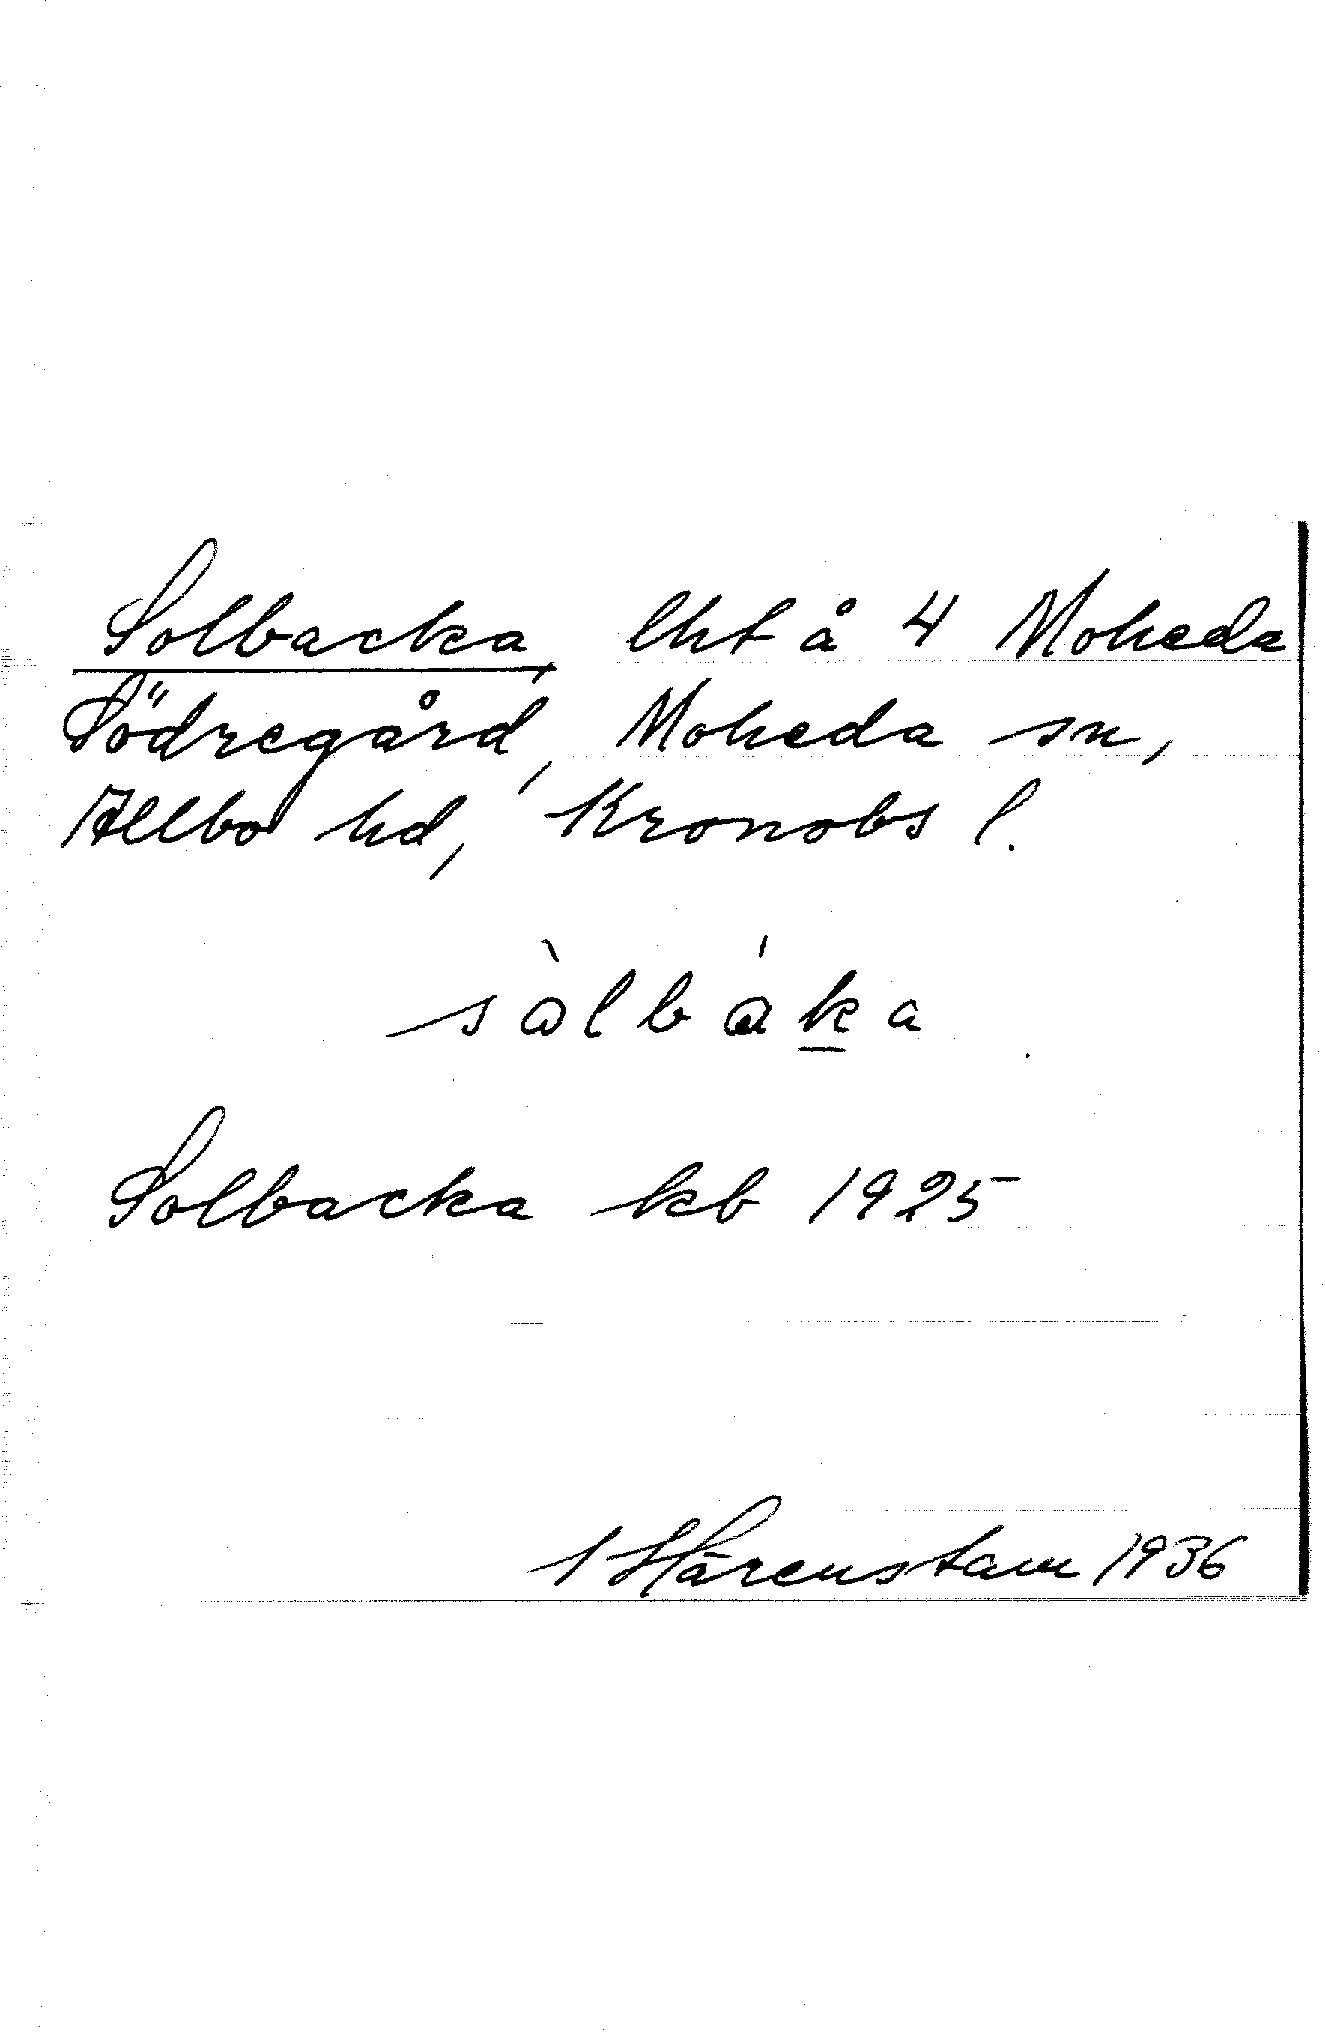 Solbacka, lht å 4 Moheda
Södregård, Moheda sn,
Allbo hd, Kronobs l.
sòlbáka
Solbacka kb 1925
Härenstam 1936